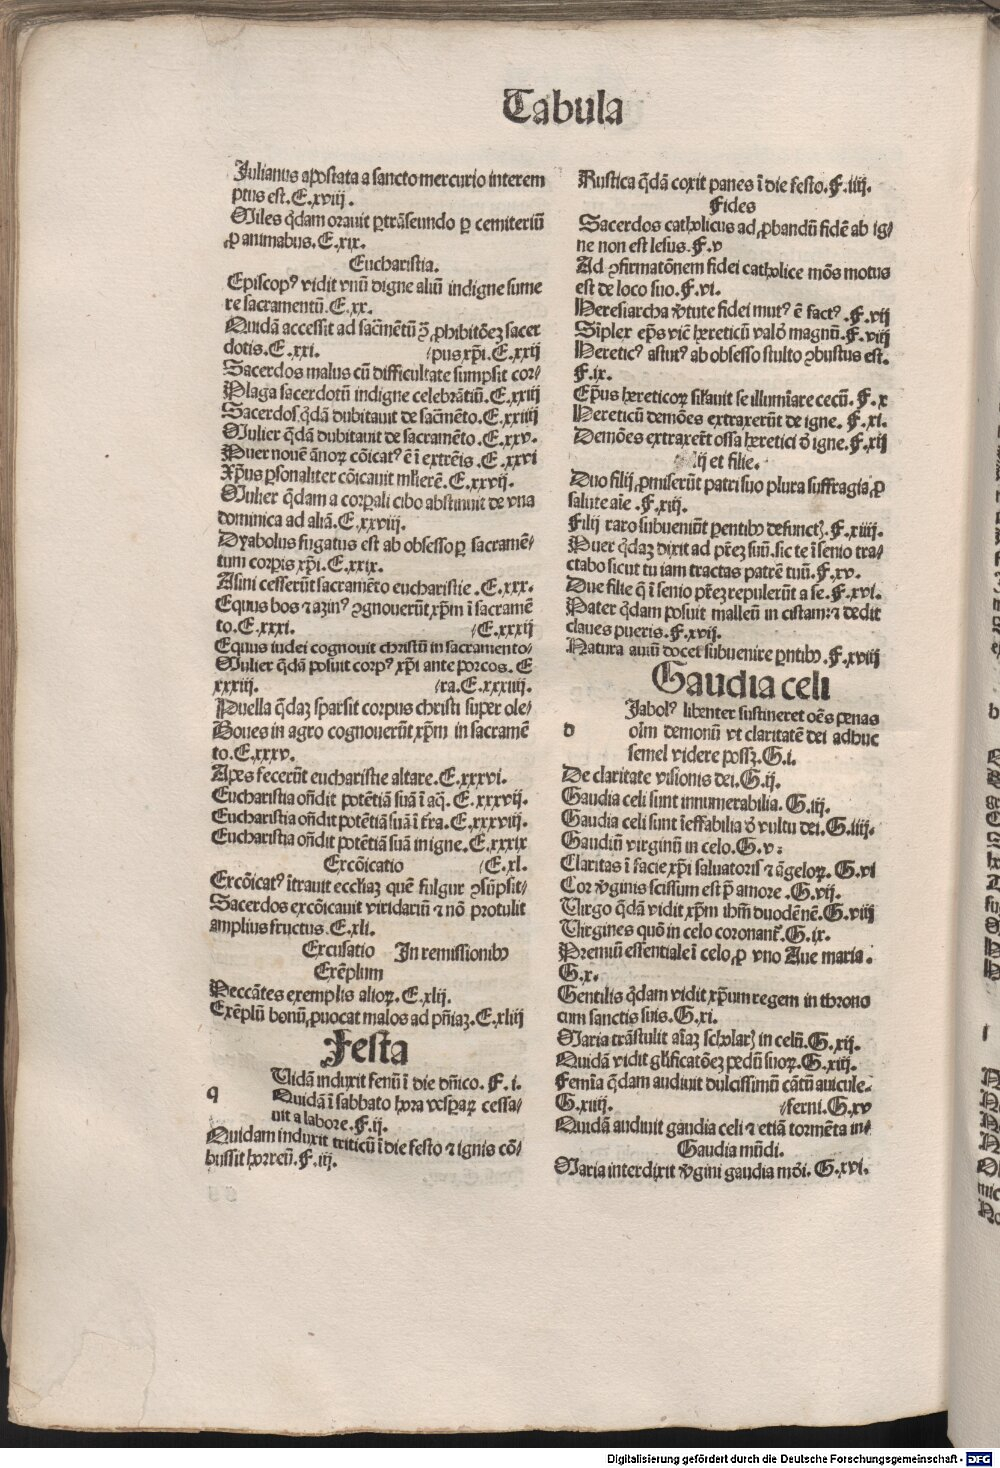 Tabula
Julianus apostata a sancto mercurio interem
ptus est. E.xviij.
Miles q̄dam orauit ꝑtrāseundo ꝑ cemiteriū
ꝓ animabus. E.xix.
Eucharistia.
Episcopꝰ vidit vnū digne aliū indigne sume
re sacramentū. E.xx.
Quidā accessit ad sacr̄mētū ꝯ̄ ꝓhibitōeꝫ sacer
dotis. E.xxi. /pus xp̄i. E.xxij
Sacerdos malus cū difficultate sumpsit cor⸗
Plaga sacerdotū indigne celebrātiū. E.xxiij
Sacerdos q̄dā dubitauit de sacr̄mēto. E.xxiiij
Mulier q̄dā dubitauit de sacramēto. E.xxv.
Puer nouē ānoꝝ cōicatꝰ ē ī extrēis. E.xxvi
Xp̄us ꝑsonaliter cōicauit mlierē. E.xxvij.
Mulier q̄dam a corꝑali cibo abstinuit de vna
dominica ad aliā. E.xxviij.
Dyabolus fugatus est ab obsesso ꝑ sacramē⸗
tum corꝑis xp̄i. E.xxix.
Asini cesserūt sacramēto eucharistie. E.xxx.
Equus bos ⁊ azinꝰ ꝯgnouerūt xp̄m ī sacramē
to. E.xxxi. /E.xxxij
Equus iudei cognouit christū in sacramento⸗
Mulier q̄dā posuit corpꝰ xp̄i ante porcos. E
xxxiij. /ra. E.xxxiiij.
Puella q̄daꝫ sparsit corpus christi super ole⸗
Boues in agro cognouerūt xp̄m in sacramē
to. E.xxxv.
Apes fecerūt eucharistie altare. E.xxxvi.
Eucharistia oñdit potētiā suā ī aq̄. E.xxxvij.
Eucharistia oñdit potētiā suā ī t̄ra. E.xxxviij.
Eucharistia oñdit potētiā suā in igne. E.xxxix
Excōicatio /E.xl.
Excōicatꝰ ītrauit eccliaꝫ quē fulgur ꝯsūpsit⸗
Sacerdos excōicauit viridariū ⁊ nō protulit
amplius fructus. E.xli.
Excusatio In remissionibꝰ
Exēplum
Peccātes exemplis alioꝝ. E.xlij.
Exēplū bonū ꝓuocat malos ad pñiaꝫ. E.xliij
Festa
q Uidā induxit fenū ī die dñico. F.i.
Quidā ī sabbato hora vesꝑaꝝ cessa⸗
uit a labore. F.ij.
Quidam induxit triticū ī die festo ⁊ ignis cō⸗
bussit horreū. F.iij.
Rustica q̄dā coxit panes ī die festo. F.iiij.
Fides
Sacerdos catholicus ad ꝓbandū fidē ab ig⸗
ne non est lesus. F.v
Ad ꝯfirmatōnem fidei catholice mōs motus
est de loco suo. F.vi.
Heresiarcha v̄tute fidei mutꝰ ē factꝰ. F.vij
Sīplex ep̄s vic̄ hereticū valde magnū. F.viij
Hereticꝰ astutꝰ ab obsesso stulto ꝯbustus est.
F.ix.
Ep̄us hereticoꝝ silauit se illumīare cecū. F.x
Hereticū demōes extraxerūt de igne. F.xi.
Demōes extraxer̄t ossa heretici de igne. F.xij
ij et filie.
Duo filij ꝓmiserūt patri suo plura suffragia ꝓ
salute aīe. F.xiij.
Filij raro subueniūt ꝑentibꝰ defunctꝭ. F.xiiij.
Puer q̄daꝫ dixit ad pr̄eꝫ suū. sic te ī senio tra⸗
ctabo sicut tu iam tractas patrē tuū. F.xv.
Due filie q̄ ī senio pr̄eꝫ repulerūt a se. F.xvi.
Pater q̄dam posuit malleū in cistam: ⁊ dedit
claues pueris. F.xvij.
Natura auiū docet subuenire ꝑntibꝰ. F.xviij
Gaudia celi
d Jabolꝰ libenter sustineret oēs penas
oīm demonū vt claritatē dei adhuc
semel videre possꝫ. G.i.
De claritate visionis dei. G.ij.
Gaudia celi sunt innumerabilia. G.iij.
Gaudia celi sunt īeffabilia de vultu dei. G.iiij.
Gaudiū virginū in celo. G.v:
Claritas ī facie xp̄i saluatoris ⁊ āgeloꝝ. G.vi
Cor v̄ginis scissum est p̄ amore. G.vij.
Virgo q̄dā vidit xp̄m ihm̄ duodēnē. G.viij
Virgines quō in celo coronant̄. G.ix.
Premiū essentiale ī celo ꝓ vno Aue maria.
G.x.
Gentilis q̄dam vidit xp̄um regem in throno
cum sanctis suis. G.xi.
Maria trāstulit aīaꝫ scholarꝭ in celū. G.xij.
Quidā vidit gl̄ificatōeꝫ pedū suoꝝ. G.xiij.
Femīa q̄dam audiuit dulcissimū cātū auicule.
G.xiiij. /ferni. G.xv
Quidā audiuit gaudia celi ⁊ etiā tormēta in⸗
Gaudia mūdi.
Maria interdixit v̄gini gaudia mōi. G.xvi.
Digitalisierung gefördert durch die Deutsche Forschungsgemeinschaft - DFG